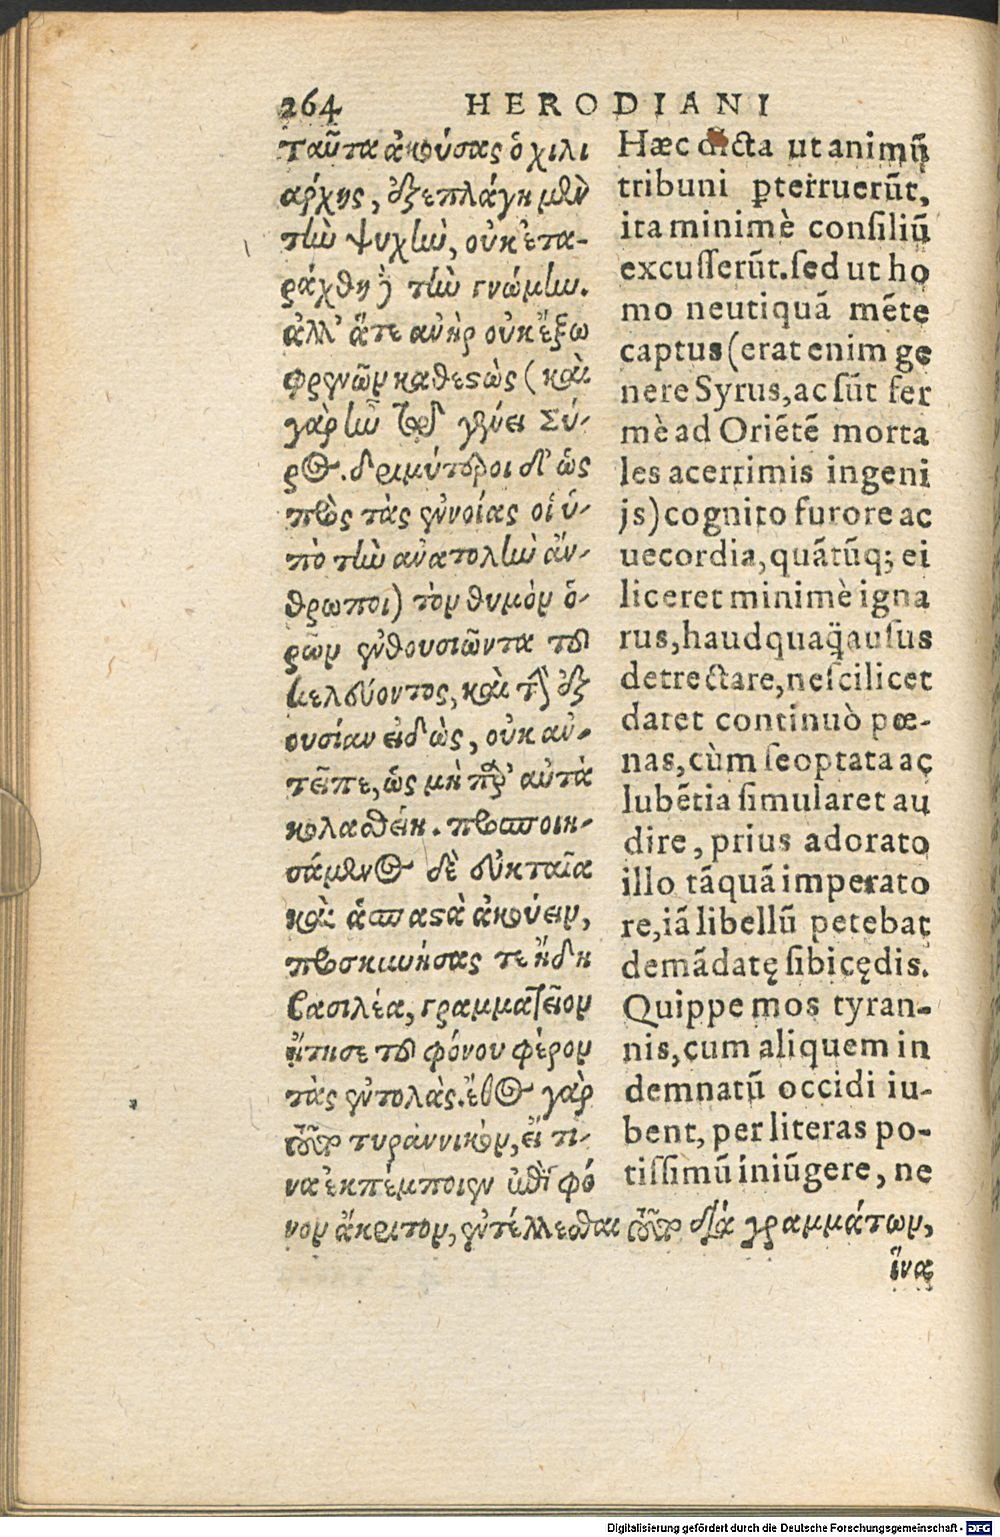 264 HERODIANI
ταῦτα ἀκούσας ὁ χιλι
άρχης, ἐξεπλάγη μὲν
τὴν ψυχὴν, οὐκ ἐτα-
ράχθη δὲ τὴν γνώμην.
ἀλλ' ἅτε ἀνὴρ οὐκ ἔξω
φρενῶν καθεστὼς (καὶ
γὰρ ἦν τὸ γένει Σύ-
ρος. δριμύτεροι δ' ὡς
πρὸς τὰς ἐννοίας οἱ ὑ-
πὸ τὴν ἀνατολὴν ἄν-
θρωποι) τὸν θυμὸν ὁ-
ρῶν ἐνθουσιῶντα τοῦ
κελεύοντος, καὶ τὴν ἐξ
ουσίαν εἰδὼς, οὐκ ἀν-
τεῖπε, ὡς μὴ παρ' αὐτὰ
κολασθείη. προσποιη-
σάμενος δὲ εὐκταῖα
καὶ ἀσπαστὰ ἀκούειν,
προσκυνήσας τε ἤδη
βασιλέα, γραμματεῖον
ᾔτησε τοῦ φόνου φέρον
τὰς ἐντολάς. ἔθος γὰρ
τοῦτο τυραννικὸν, εἴ τι-
να ἐκπέμποιεν ἐπὶ φό
νον ἄκριτον, ἐντέλλεσθαι τοῦτο διὰ γραμμάτων,
ἵνα
Hæc dicta ut animũ
tribuni ꝑterruerũt,
ita minimè consiliũ
excusserũt. sed ut ho
mo neutiquã mẽte
captus (erat enim ge
nere Syrus, ac sũt fer
mè ad Oriẽtẽ morta
les acerrimis ingeni
js) cognito furore ac
uecordia, quãtũq; ei
liceret minimè igna
rus, haudquaq̃ ausus
detrectare, ne scilicet
daret continuò pœ-
nas, cùm se optata ac
lubẽtia simularet au
dire, prius adorato
illo tãquã imperato
re, iã libellũ petebat
demãdatę sibi cędis.
Quippe mos tyran-
nis, cum aliquem in
demnatũ occidi iu-
bent, per literas po-
tissimũ iniũgere, ne
Digitalisierung gefördert durch die Deutsche Forschungsgemeinschaft - DFG